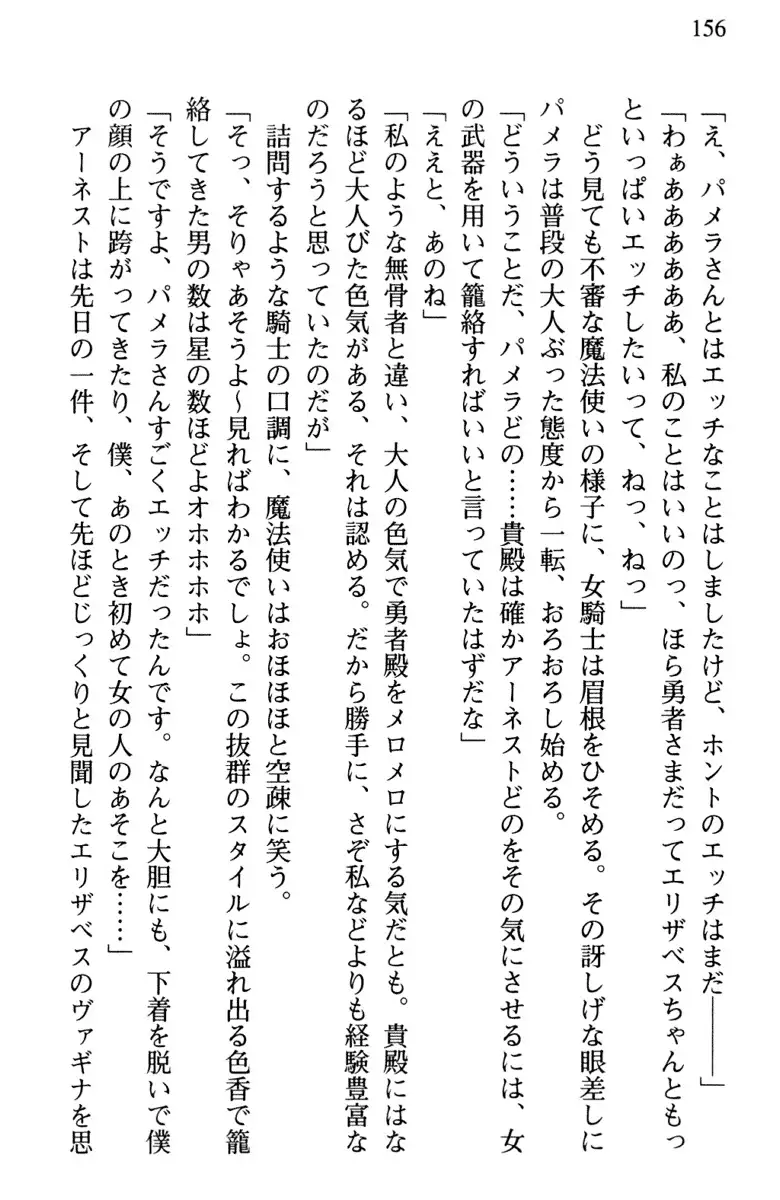 156
「え、パメラさんとはエッチなことはしましたけど、ホントのエッチはまだ――――」
「わぁああああああ、私のことはいいのっ、ほら勇者さまだってエリザベスちゃんともっ
といっぱいエッチしたいって、ねっ、ねっ」
　どう見ても不審な魔法使いの様子に、女騎士は眉根をひそめる。その訝しげな眼差しに
パメラは普段の大人ぶった態度から一転、おろおろし始める。
「どういうことだ、パメラどの……貴殿は確かアーネストどのをその気にさせるには、女
の武器を用いて籠絡すればいいと言っていたはずだな」
「ええと、あのね」
「私のような無骨者と違い、大人の色気で勇者殿をメロメロにする気だとも。貴殿にはな
るほど大人びた色気がある、それは認める。だから勝手に、さぞ私などよりも経験豊富な
のだろうと思っていたのだが」
　詰問するような騎士の口調に、魔法使いはおほほほと空疎に笑う。
「そっ、そりゃあそうよ〜見ればわかるでしょ。この抜群のスタイルに溢れ出る色香で籠
絡してきた男の数は星の数ほどよオホホホホ」
「そうですよ、パメラさんすごくエッチだったんです。なんと大胆にも、下着を脱いで僕
の顔の上に跨がってきたり、僕、あのとき初めて女の人のあそこを……」
　アーネストは先日の一件、そして先ほどじっくりと見聞したエリザベスのヴァギナを思